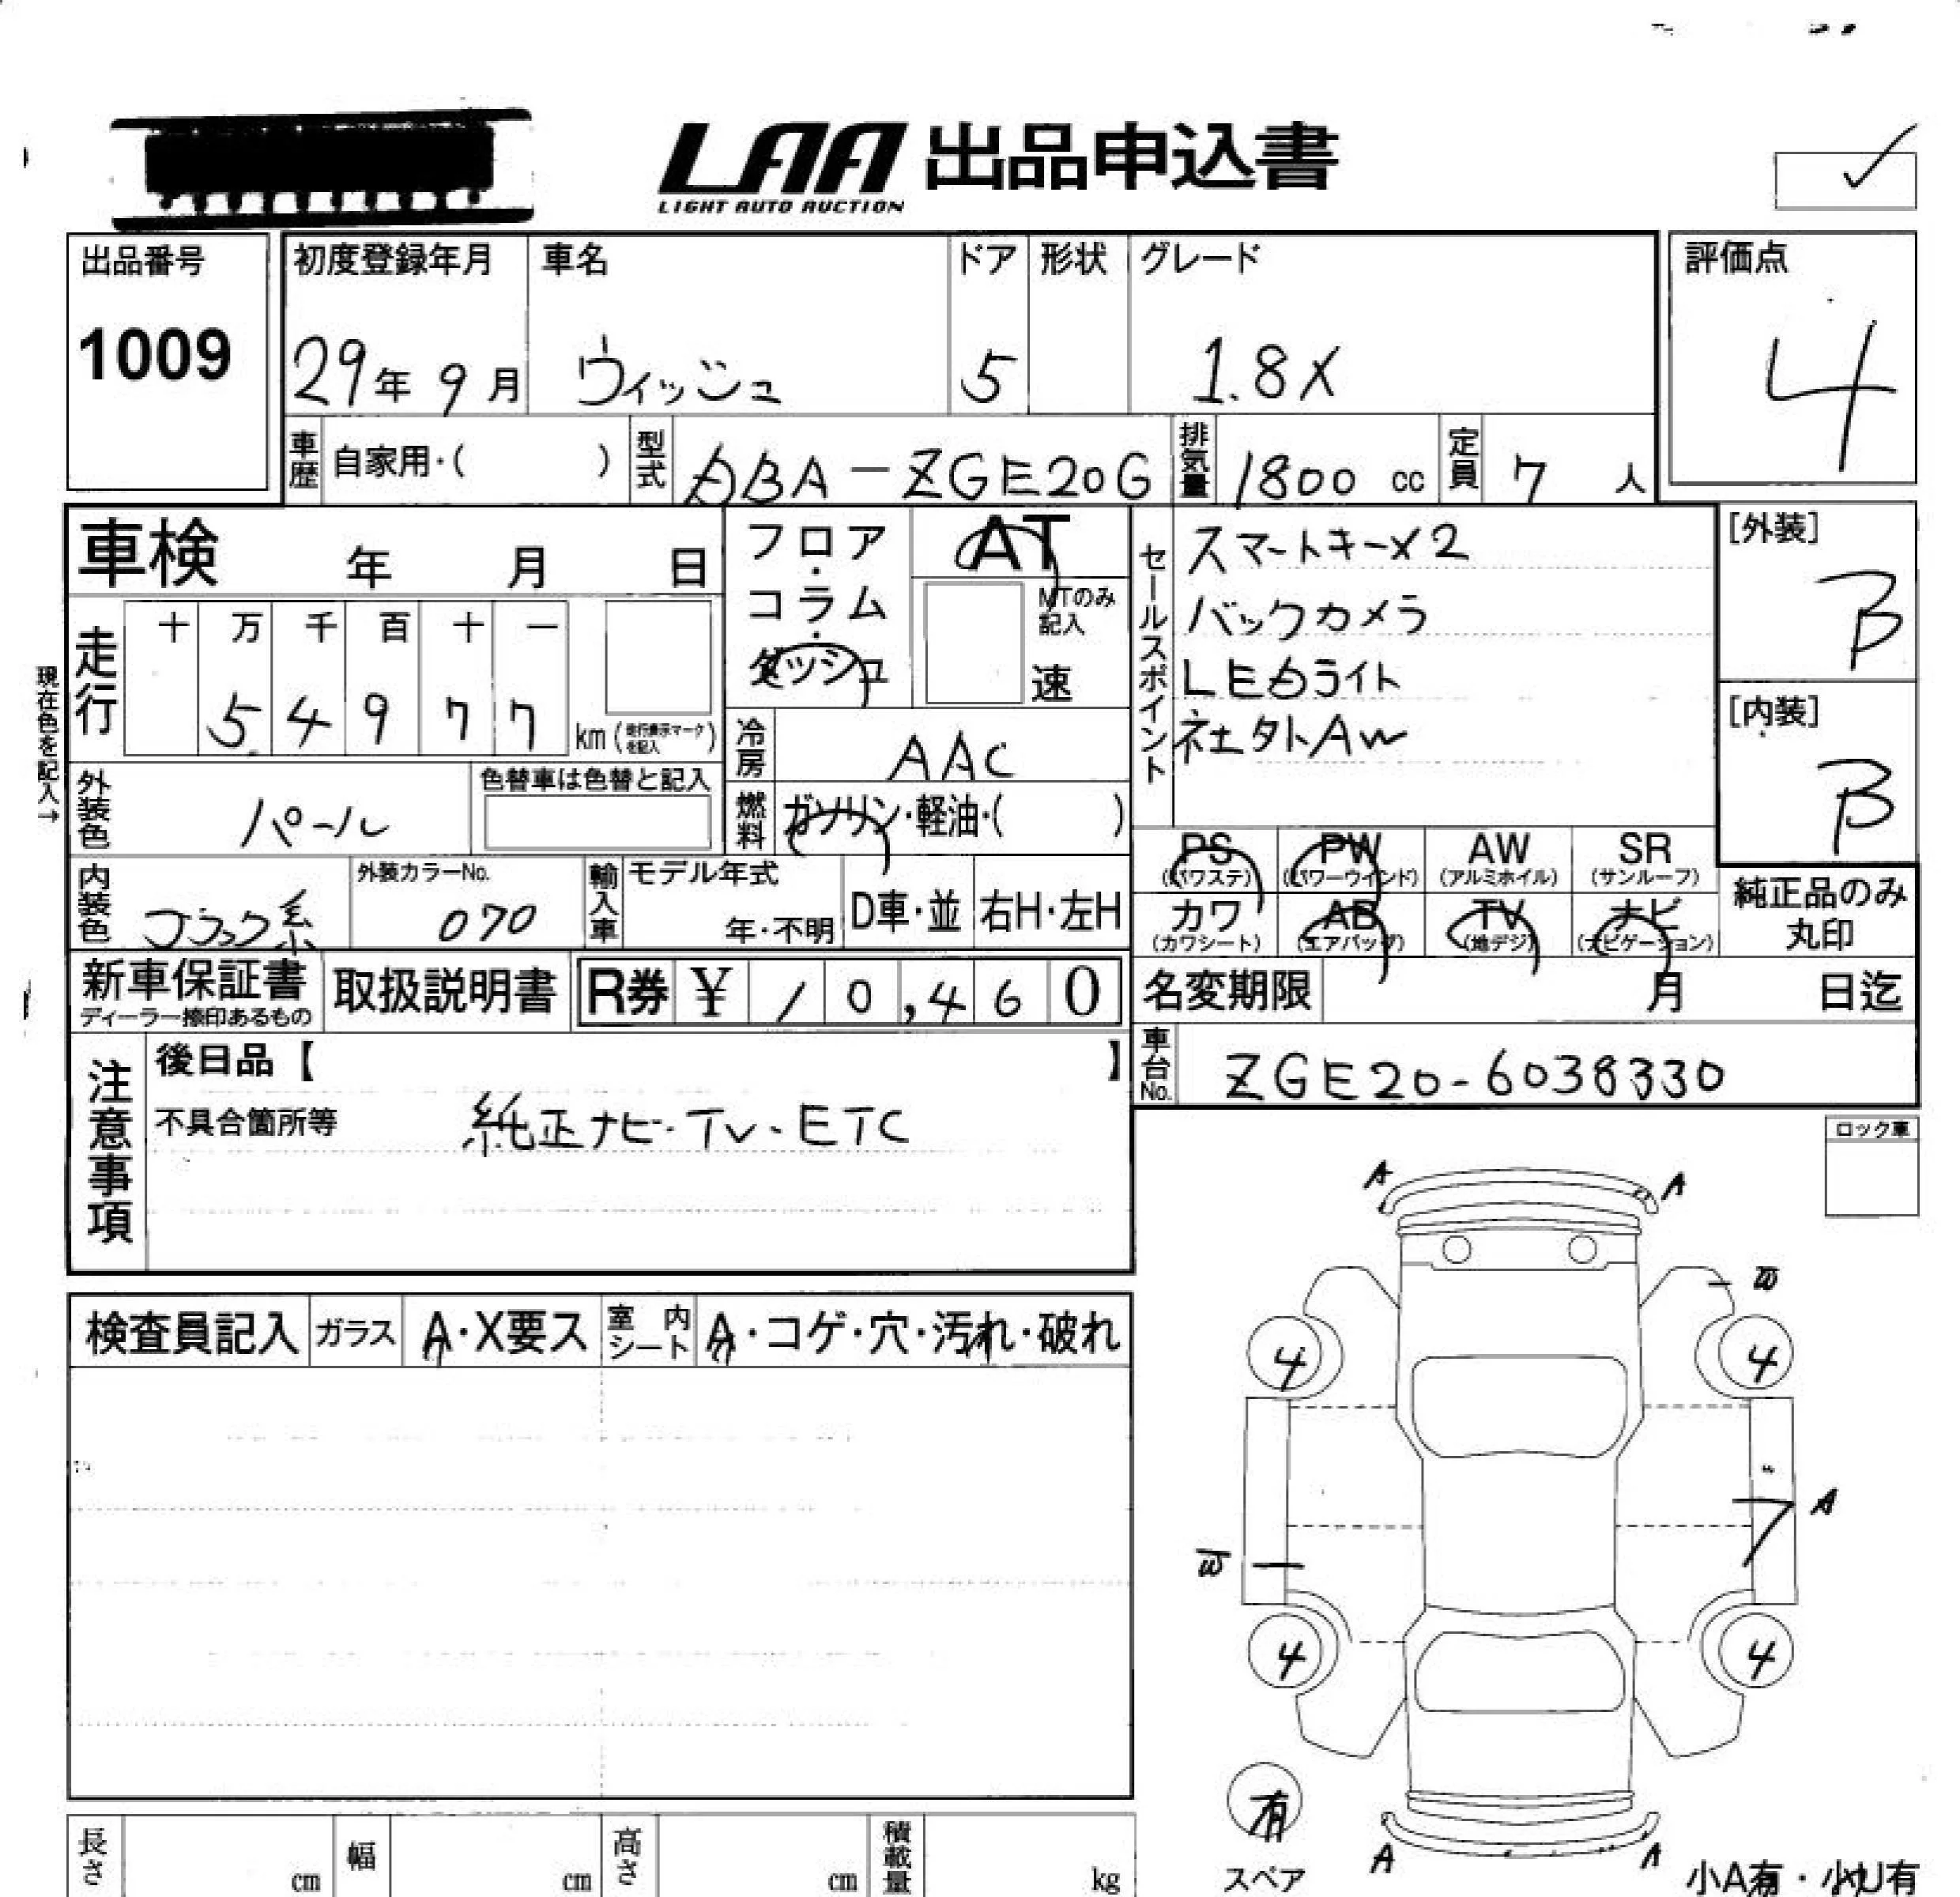 LAA 出品申込書
LIGHT AUTO AUCTION
出品番号
1009
初度登録年月
29年 9月
車名
ウィッシュ
ドア
5
形状
グレード
1.8X
評価点
4
車歴
自家用・( )
型式
DBA-ZGE20G
排気量
1800 cc
定員
7 人
車検 年 月 日
フロア・コラム・ダッシュ
AT
MTのみ記入
速
セールスポイント
スマートキーX2
バックカメラ
LEDライト
社外AW
[外装]
B
[内装]
B
現在色を記入→
走行
十 万 千 百 十 一
5 4 9 7 7
km(走行表示マークを記入)
冷房
AAC
燃料
ガソリン・軽油・( )
外装色
パール
色替車は色替と記入
内装色
ブラック系
外装カラーNo.
070
輸入車
モデル年式
年・不明
D車・並
右H・左H
PS
(パワステ)
PW
(パワーウインド)
AW
(アルミホイル)
SR
(サンルーフ)
カワ
(カワシート)
AB
(エアバッグ)
TV
(地デジ)
ナビ
(ナビゲーション)
純正品のみ
丸印
新車保証書
ディーラー捺印あるもの
取扱説明書
R券 ¥ 10,460
名変期限 月 日迄
車台No.
ZGE20-6038330
注意事項
後日品【 】
不具合箇所等
純正ナビ・TV・ETC
ロック車
検査員記入
ガラス
A・X要ス
室内シート
A・コゲ・穴・汚れ・破れ
A
A
W
4
4
A
W
4
4
有
スペア
A
A
小A有・小U有
長さ cm
幅 cm
高さ cm
積載量 kg